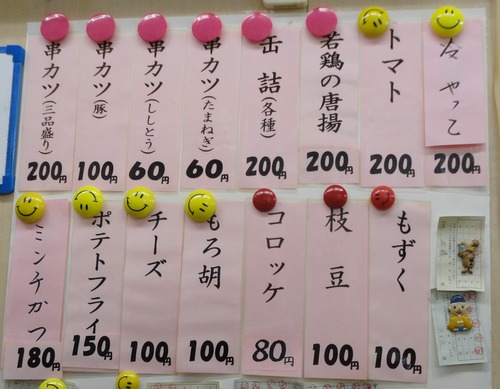 冷 やっこ 200円
トマト 200円
若鶏の唐揚 200円
缶詰(各種) 200円
串カツ(たまねぎ) 60円
串カツ(ししとう) 60円
串カツ(豚) 100円
串カツ(三品盛り) 200円
もずく 100円
枝豆 100円
コロッケ 80円
もろ胡 100円
チーズ 100円
ポテトフライ 150円
ミンチかつ 180円